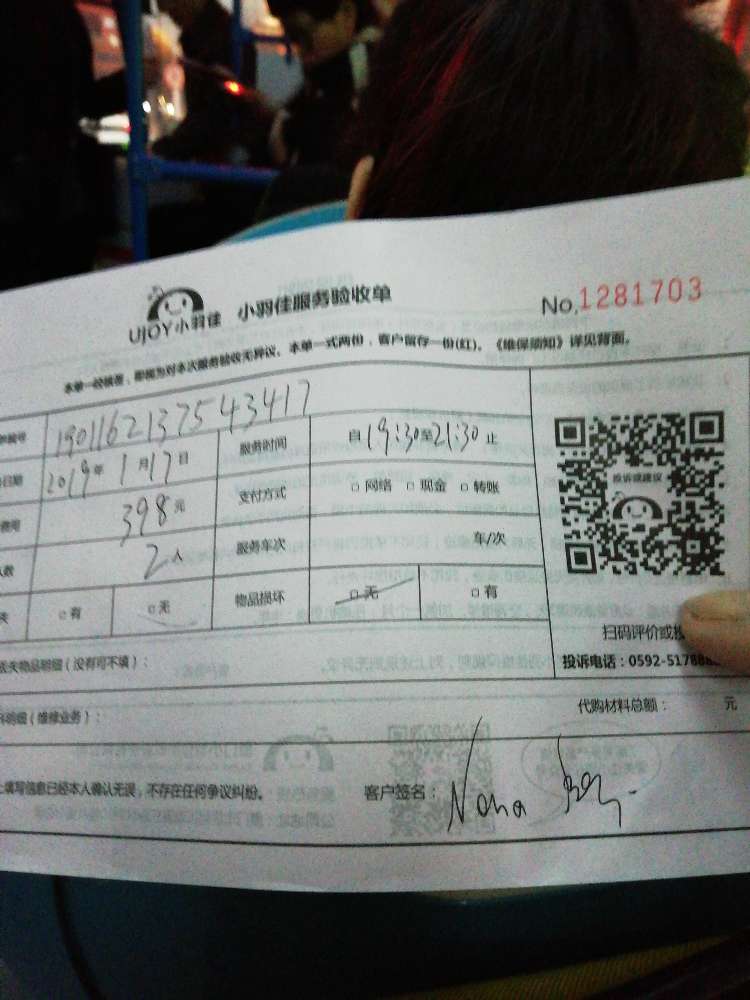 UJOY小羽佳 小羽佳服务验收单 No.1281703
本单一经核签，即视为对本次服务验收无异议。本单一式两份，客户留存一份(红)。《维保须知》详见背面。
编号 190116213754 3417
日期 2019年1月17日 服务时间 自19:30至21:30止
费用 398元 支付方式 □网络 □现金 □转账
人数 2人 服务车次 车/次
□有 □无 物品损坏 □无 □有
投诉或建议
扫码评价或投
投诉电话：0592-517888
丢失物品明细（没有可不填）：
料明细（维修业务）： 代购材料总额： 元
上填写信息已经本人确认无误，不存在任何争议纠纷。 客户签名： Nana